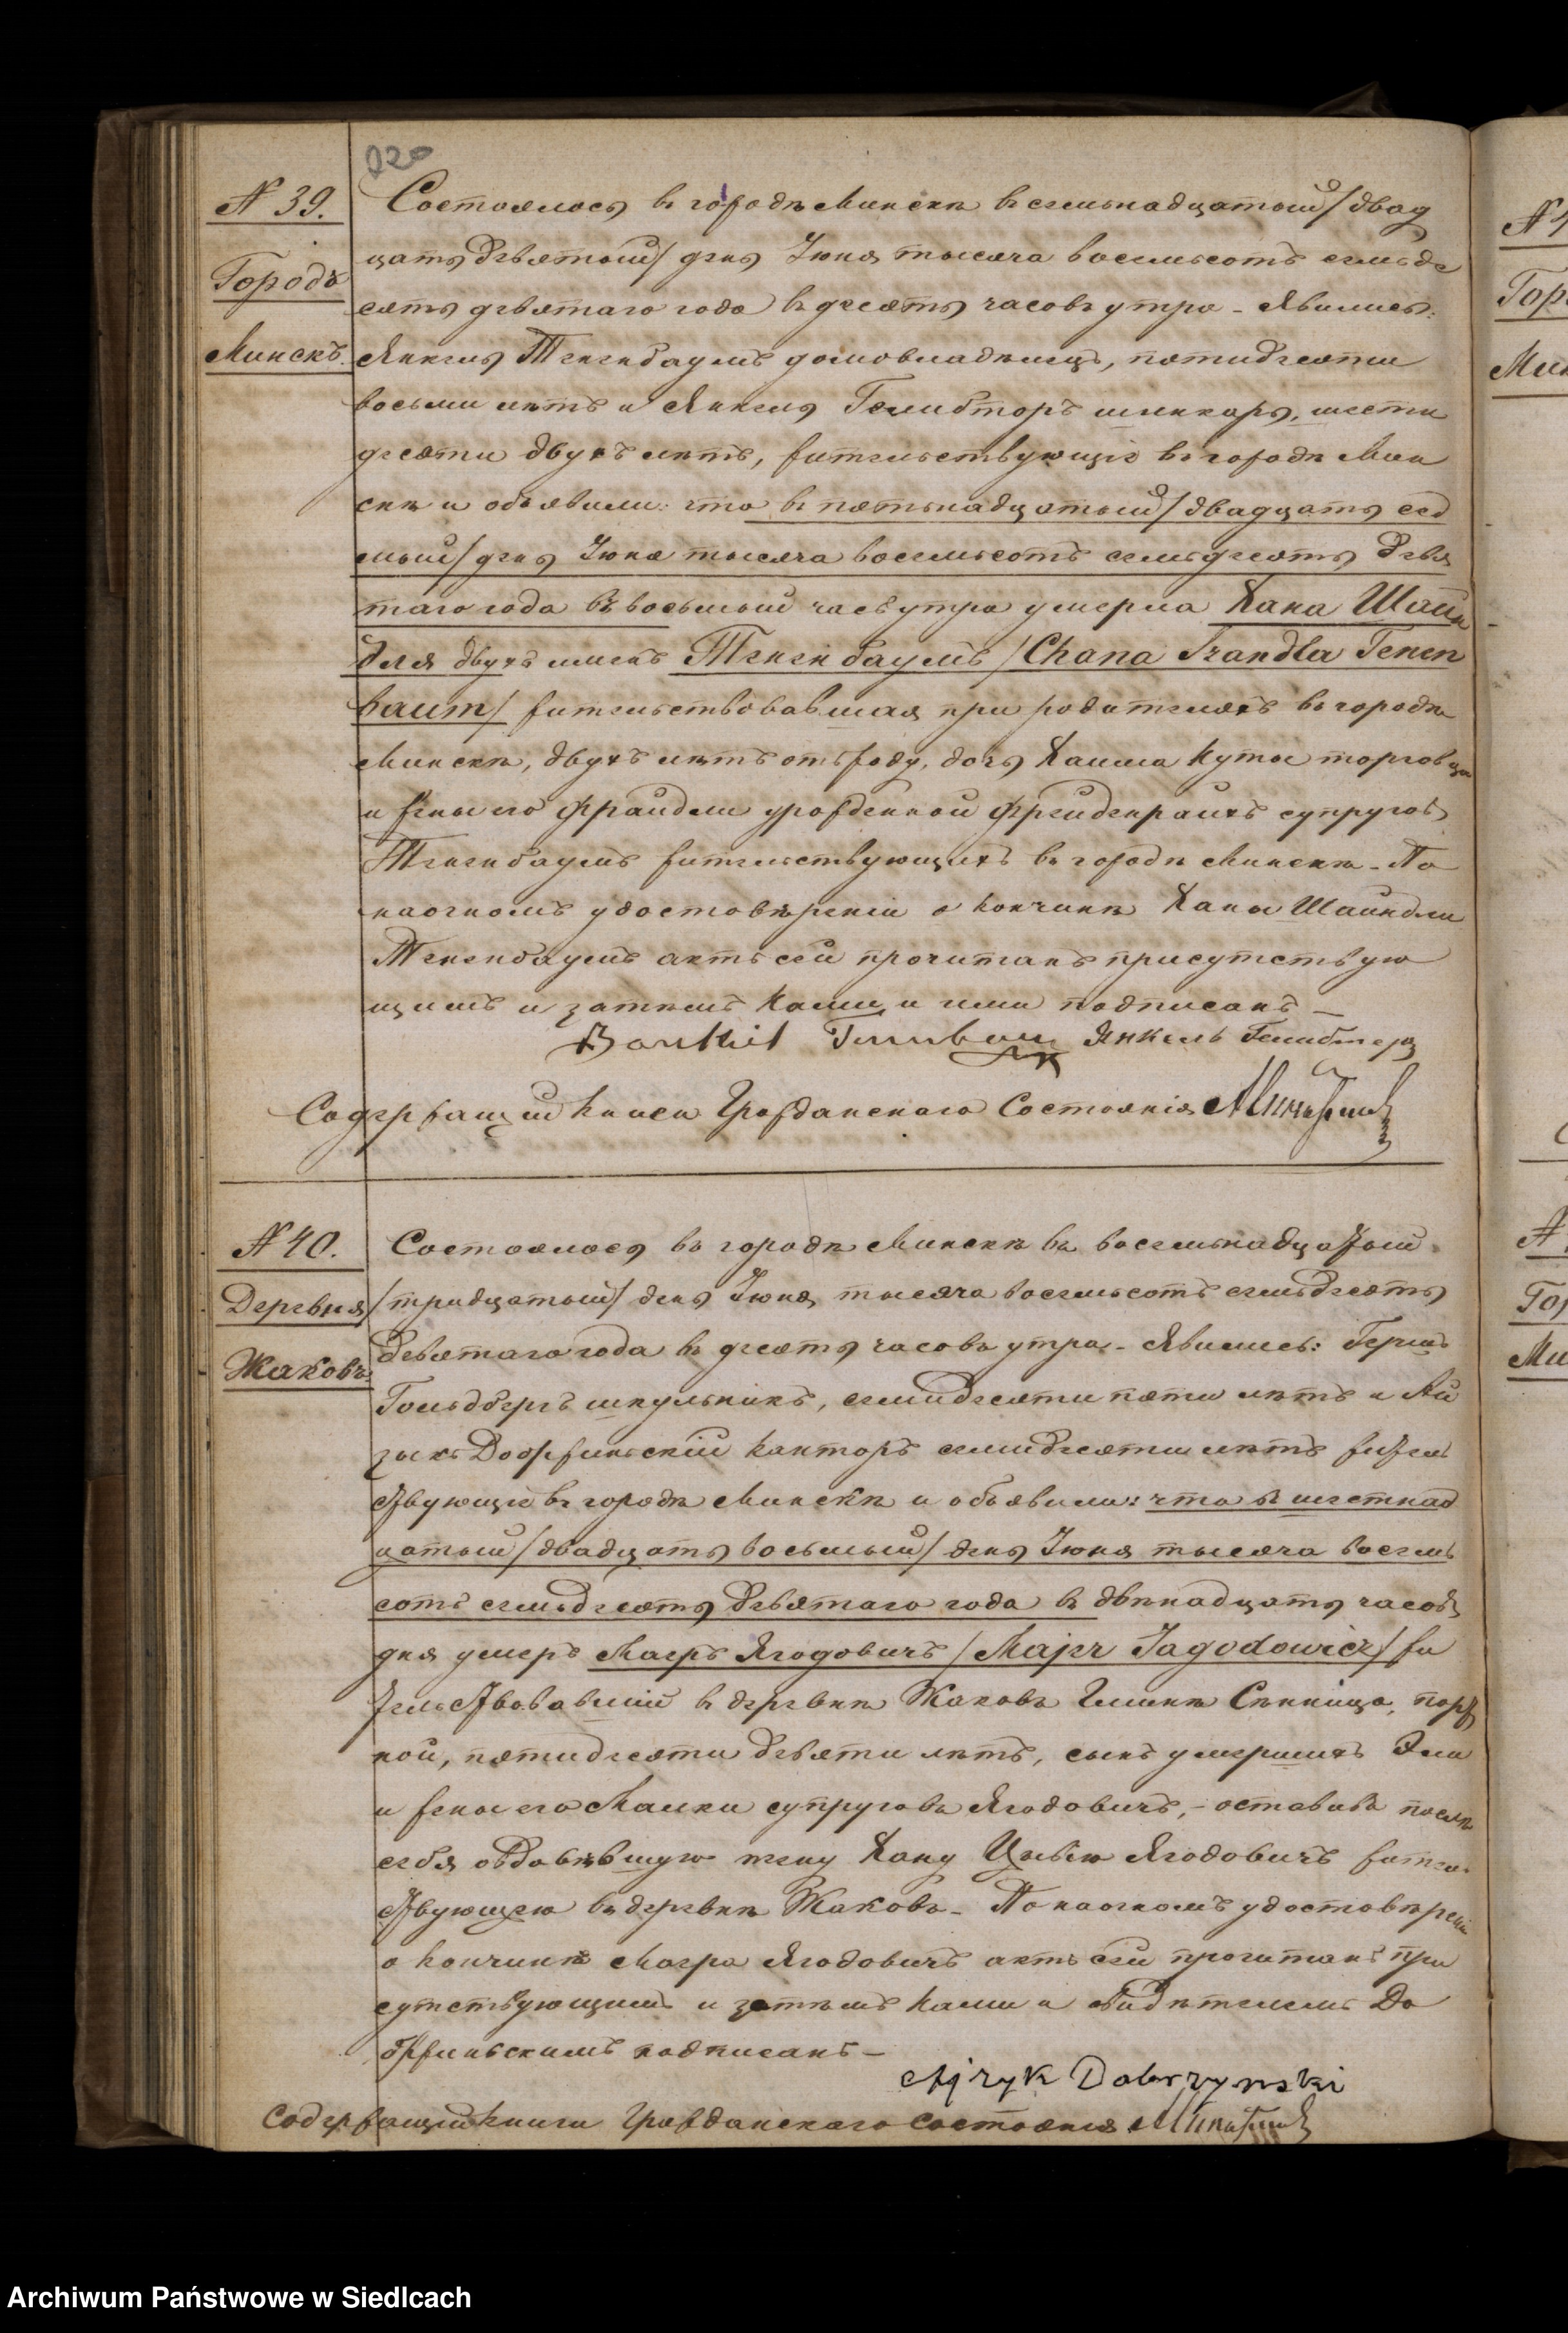 220
N 39.
Городъ
Минскъ.
Состоялось въ городѣ Минскѣ въ семьнадцатый /двад
цать девятый/ день Іюня тысяча восемьсотъ семьде
сятъ девятаго года въ десять часовъ утра - Явились:
Янкель Тененбаумъ домовладѣлецъ, пятидесяти
восьми лѣтъ и Янкель шинкарь, шести
десяти двухъ лѣтъ, жительствующіе въ городѣ Мин
скѣ и объявили: что въ пятьнадцатый /двадцать сед
мый/ день Іюня тысяча восемьсотъ семьдесятъ девя
таго года въ восьмый часъ утра умерла Хана Шайн
для двухъ именъ Тененбаумъ /Chana Szandla Tenen
baum/ жительствовавшая при родителяхъ въ городѣ
Минскѣ, двухъ лѣтъ отъ роду, дочь Хаима Куты торговца
и жены его Фрайдли урожденной Фрейденрайхъ супруговъ
Тененбаумъ жительствующихъ въ городѣ Минскѣ - По
наочномъ удостовѣреніи о кончинѣ Ханы Шайндли
Тененбаумъ актъ сей прочитанъ присутствую
щимъ и затѣмъ нами и ими подписанъ -
Янкель
Содержащій книги Гражданскаго Состоянія
N 40.
Деревня
Жаковъ.
Состоялось въ городѣ Минскѣ въ восемьнадцатый
/тридцатый/ день Іюня тысяча восемьсотъ семьдесятъ
девятаго года въ десять часовъ утра - Явились: Гершъ
Гольдбергъ шкульникъ, семидесяти пяти лѣтъ и Ай
зыкъ Добржиньскій канторъ семидесяти лѣтъ житель
ствующіе въ городѣ Минскѣ и объявили: что въ шестнад
цатый /двадцать восьмый/ день Іюня тысяча восемь
сотъ семьдесятъ девятаго года въ двѣнадцать часовъ
дня умеръ Маеръ Ягодовичъ /Majer Jagodowicz/ жи
тельствовавшій въ деревнѣ Жаковъ Гминѣ Сѣнница, порт
ной, пятидесяти девяти лѣтъ, сынъ умершихъ Эли
и жены его Малки супруговъ Ягодовичъ, - оставивъ послѣ
себя овдовѣвшую жену Хану Цывію Ягодовичъ жител
ствующею въ деревнѣ Жаковъ - По наочномъ удостовѣреніи
о кончинѣ Маера Ягодовичъ актъ сей прочитанъ при
сутствующимъ и затѣмъ нами и свидѣтелемъ До
бржиньскимъ подписанъ -
Ajzyk Dobrzynski
Содержащій книги Гражданскаго Состоянія
N
Гор
Ми
Archiwum Państwowe w Siedlcach